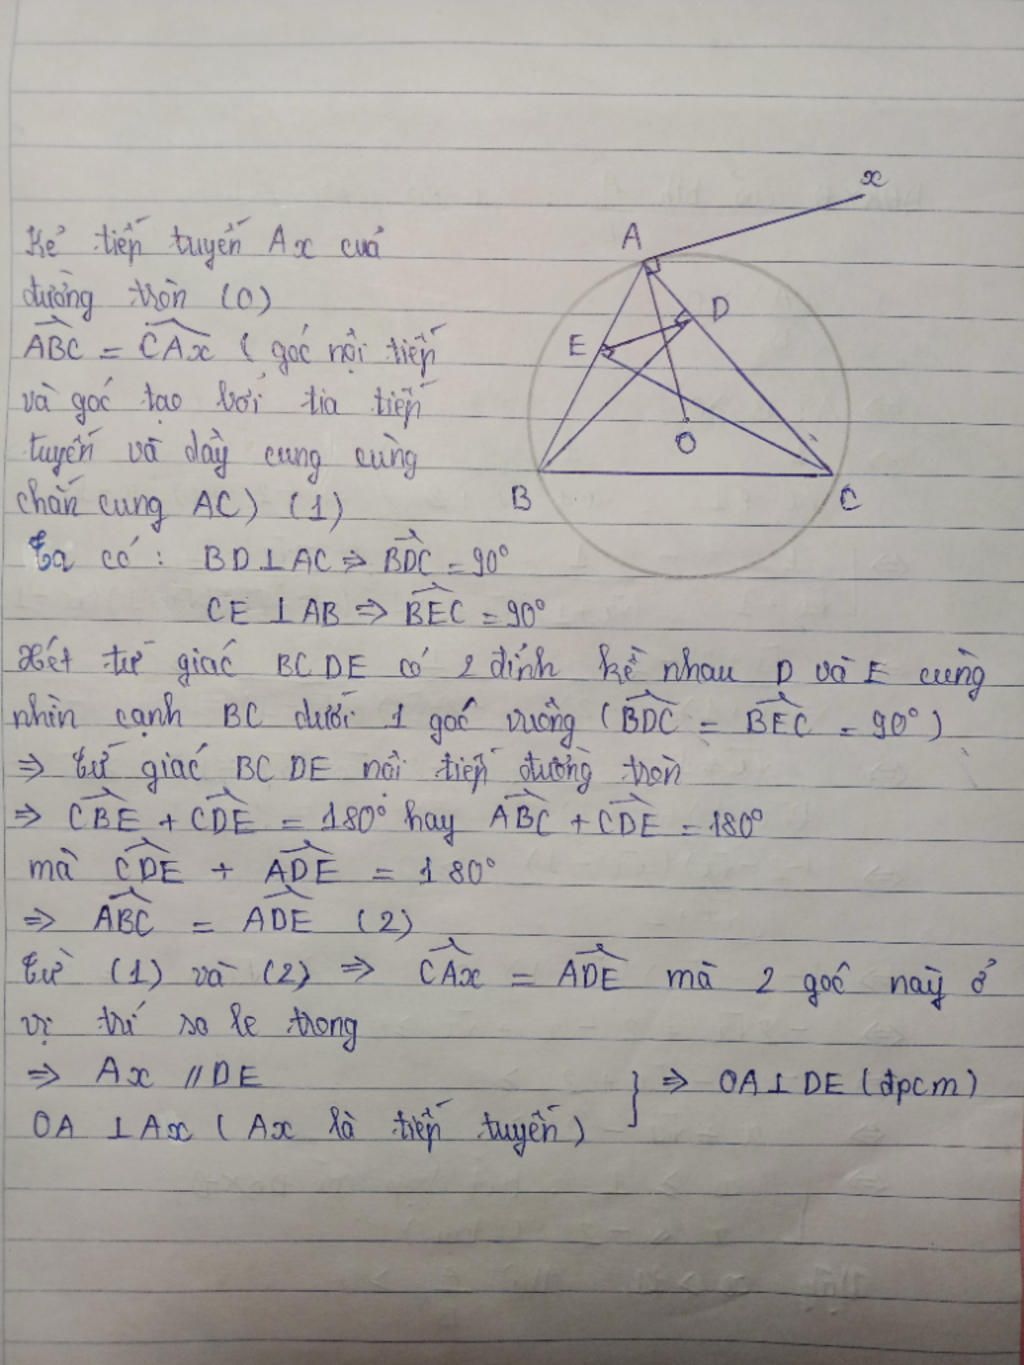 x
A
Kẻ tiếp tuyến Ax của
đường tròn (O)
D
E
ABC = CAx ( góc nội tiếp
và góc tạo bởi tia tiếp
O
tuyến và dây cung cùng
B
C
chắn cung AC) (1)
Ta có : BD ⊥ AC ⇒ BDC = 90°
CE ⊥ AB ⇒ BEC = 90°
Xét tứ giác BCDE có 2 đỉnh kề nhau D và E cùng
nhìn cạnh BC dưới 1 góc vuông (BDC = BEC = 90°)
⇒ Tứ giác BCDE nội tiếp đường tròn
⇒ CBE + CDE = 180° hay ABC + CDE = 180°
mà CDE + ADE = 180°
⇒ ABC = ADE (2)
Từ (1) và (2) ⇒ CAx = ADE mà 2 góc này ở
vị trí so le trong
⇒ Ax // DE
} ⇒ OA ⊥ DE (đpcm)
OA ⊥ Ax ( Ax là tiếp tuyến)